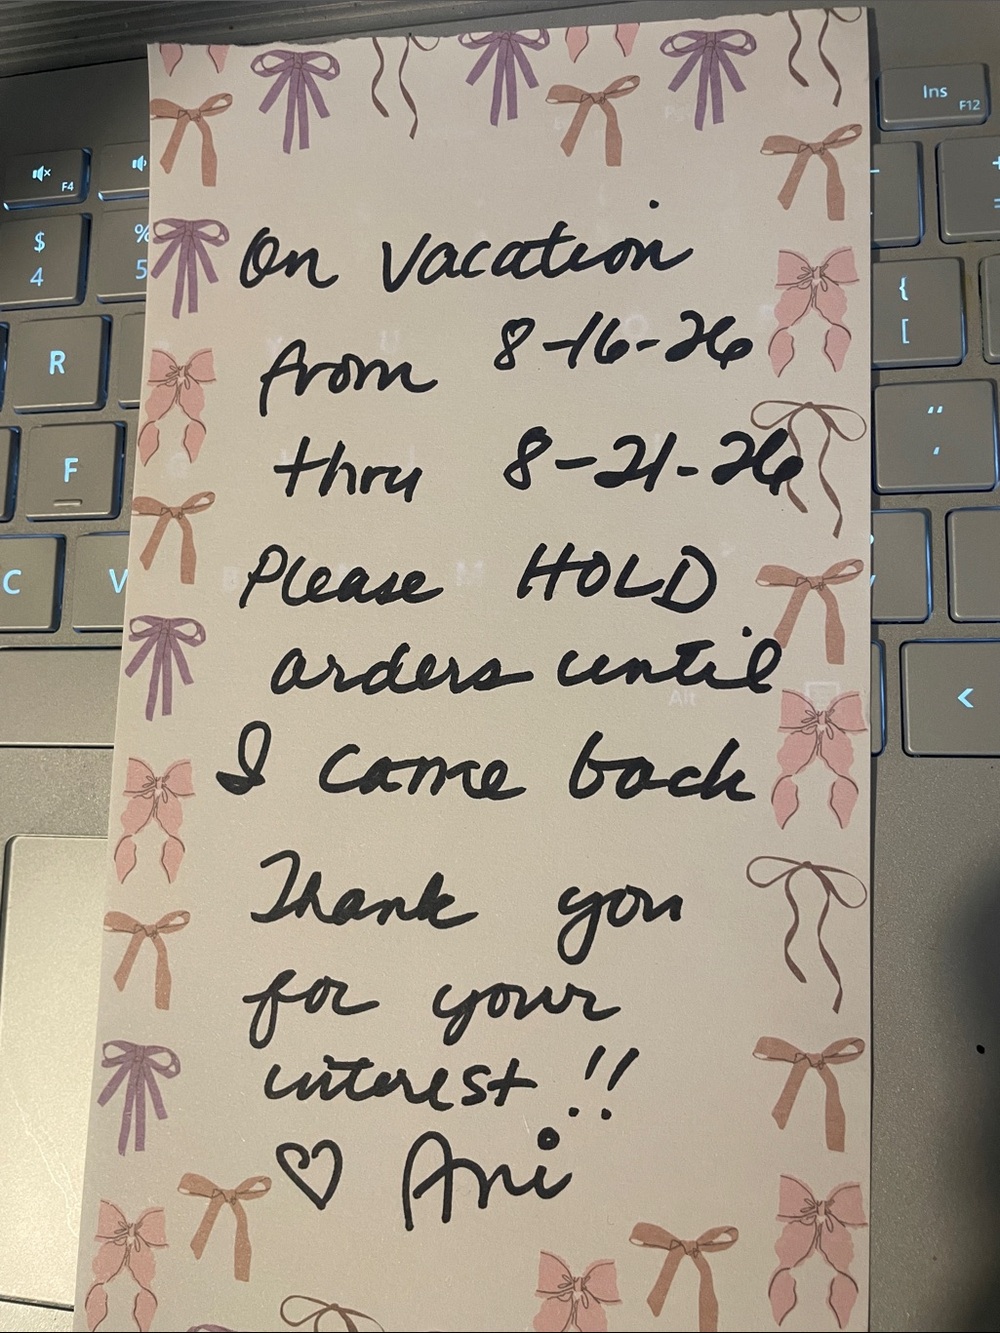 On Vacation
from 8-16-26
thru 8-21-26
Please HOLD
orders until
I come back
Thank you
for your
interest !!
♡ Ani
Ins
F12
F4
$
4
%
5
R
F
C
V
{
[
“
‘
Alt
<